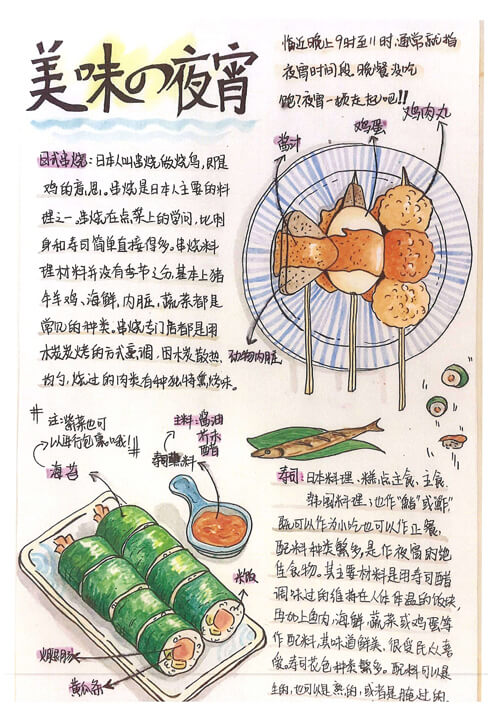 美味の夜宵
临近晚上9时至11时,通常就指
夜宵时间段。晚餐没吃
饱?夜宵一顿走起吧!!
酱汁
鸡蛋
鸡肉丸
动物内脏
日式串烧:日本人叫串烧做烧鸟,即是
鸡的意思。串烧是日本人主要的料
理之一。串烧在点菜上的学问,比刺
身和寿司简单直接得多。串烧料
理材料并没有季节之分,基本上猪
牛羊鸡、海鲜,内脏,蔬菜都是
常见的种类。串烧专门店都是用
木炭炭烤的方式烹调,因木炭散热
均匀,烧过的肉类有种独特熏烧味。
#注:紫菜也可
以进行包裹哦!#
海苔
主料:酱油
芥末
醋
寿司蘸料
米饭
黄瓜条
寿司:日本料理、糕点主食、主食、
韩国料理;也作"鮨"或"鲊",
既可以作为小吃也可以作正餐,
配料种类繁多,是作夜宵的绝
佳食物。其主要材料是用寿司醋
调味过的维持在人体体温的饭块,
再加上鱼肉,海鲜,蔬菜或鸡蛋等
作配料,其味道鲜美,很受民众喜
爱。寿司花色种类繁多。配料可以是
生的,也可以是熟的,或者是腌过的。